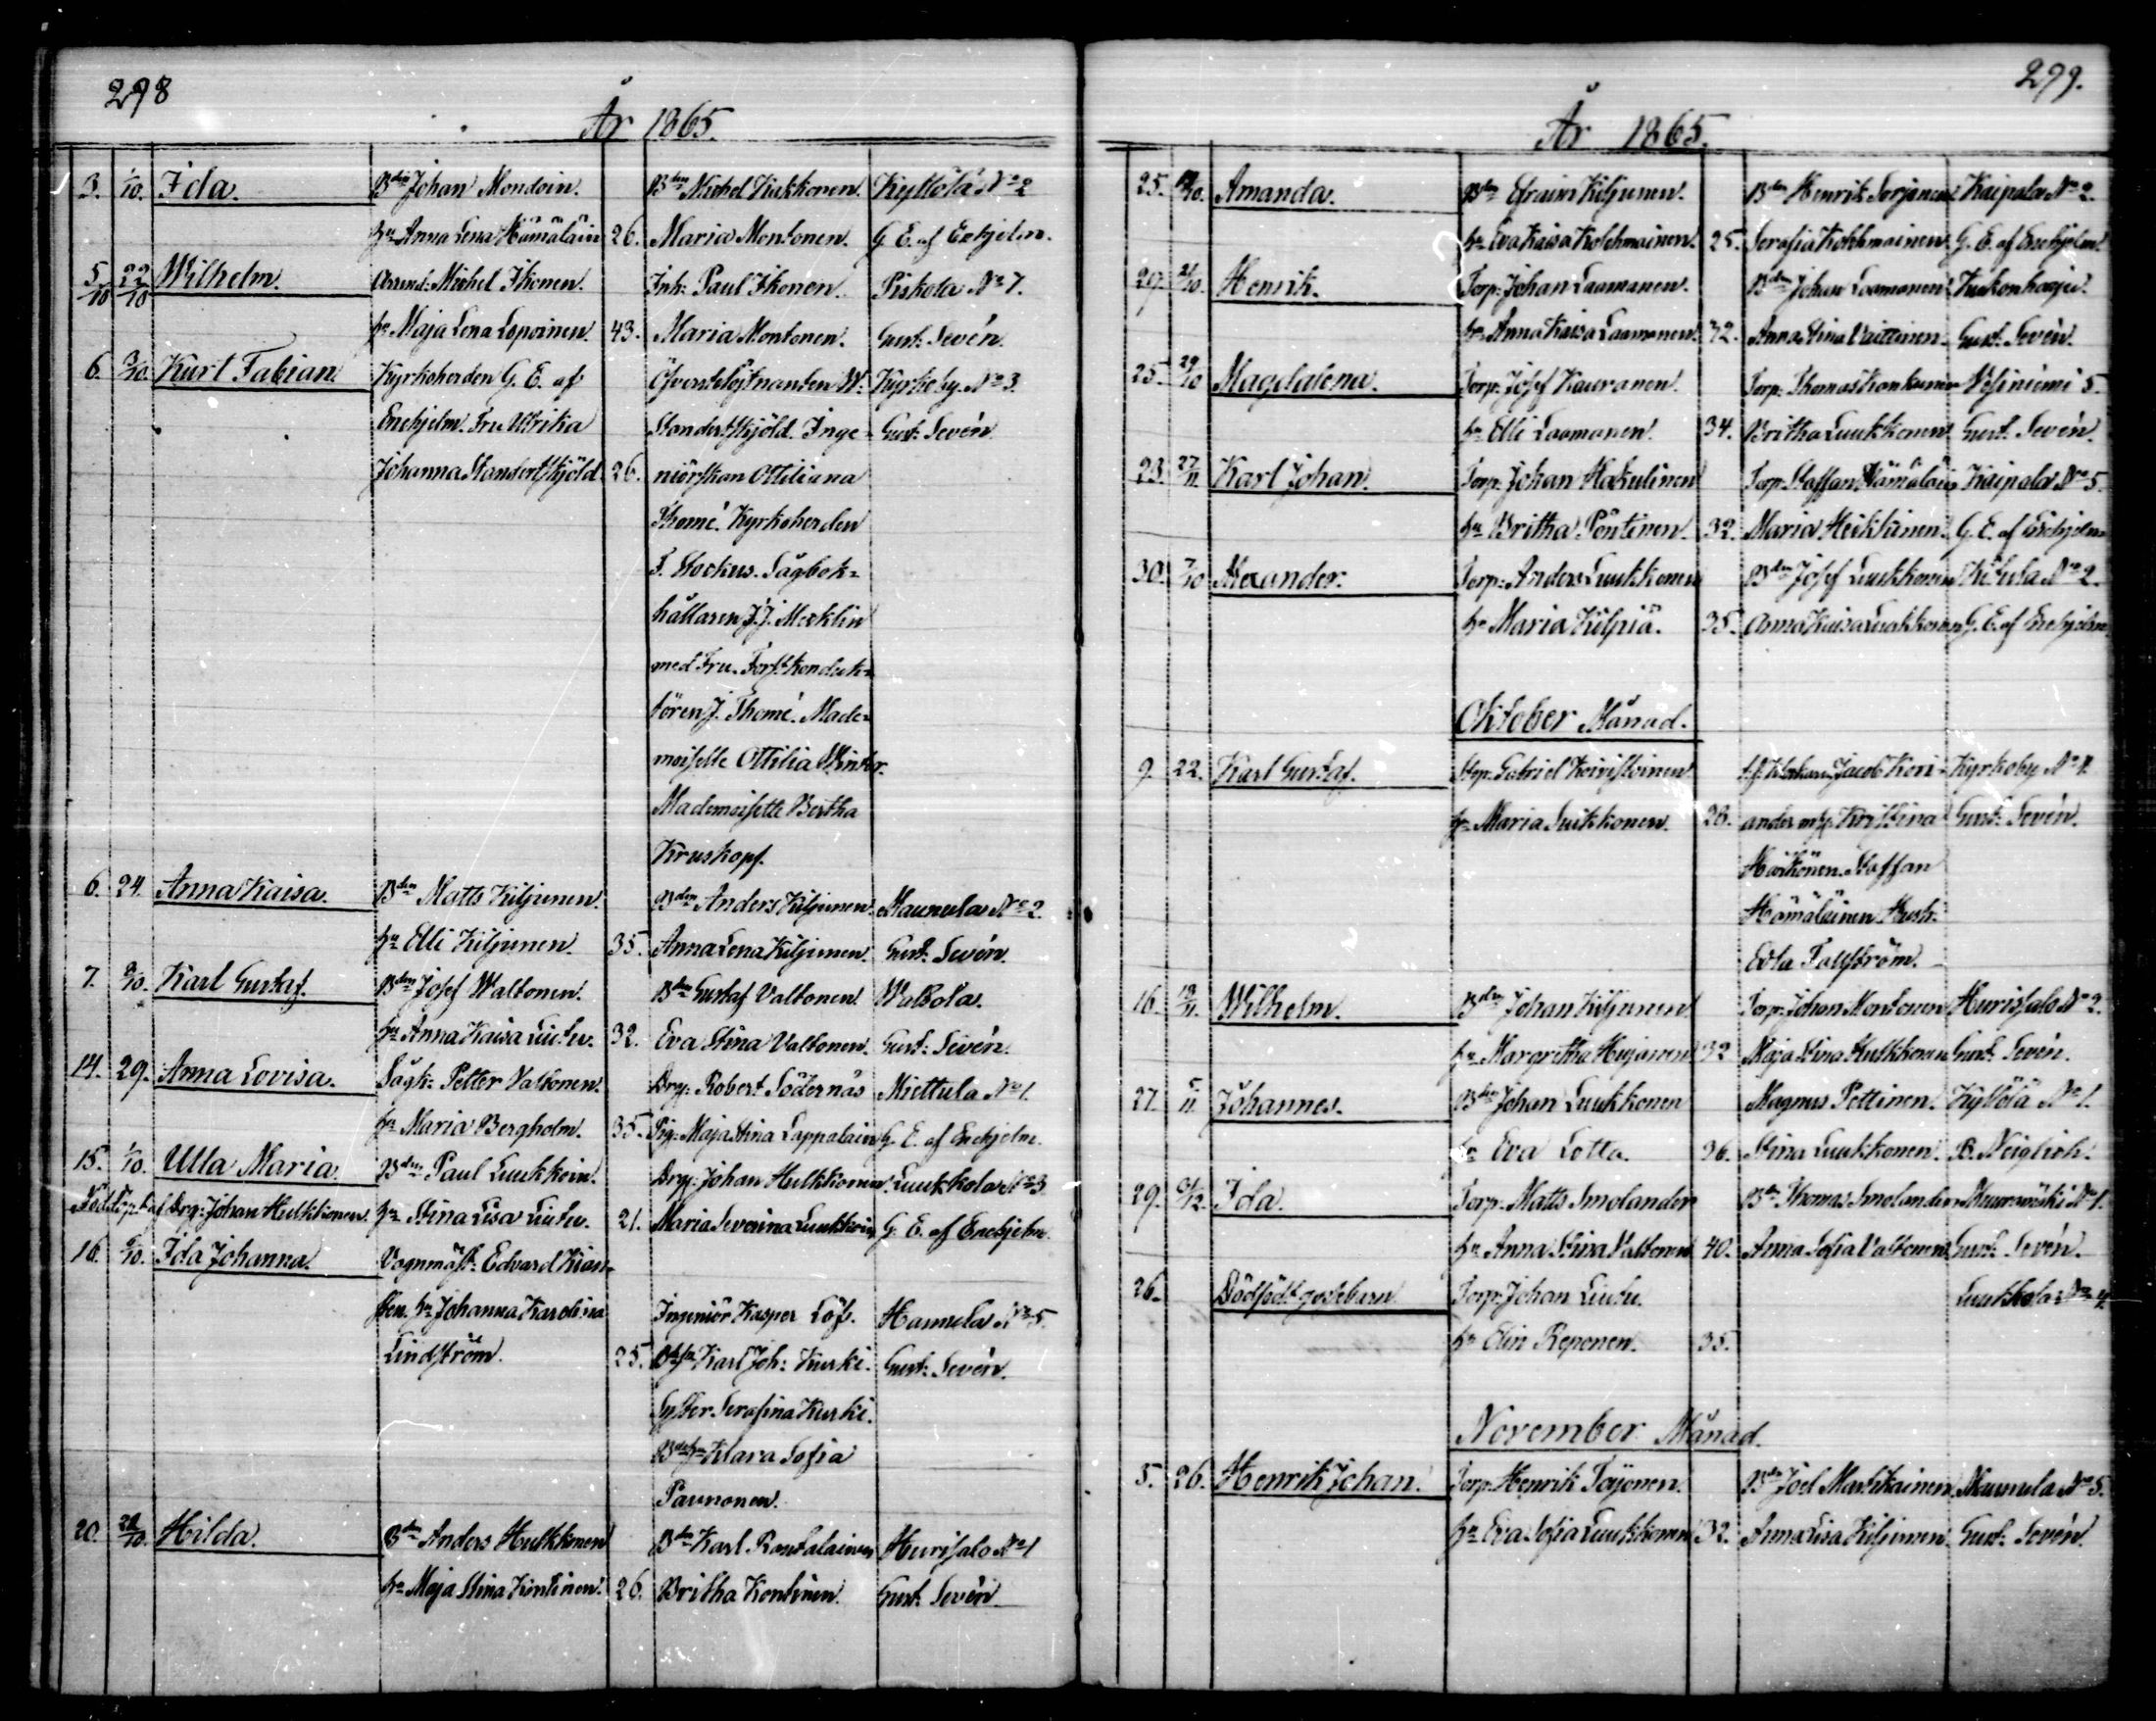 298
År 1865.
3. 1/10. Ida. Bdn Johan Mondoin. Bdn Michel Kiakkonen. Kyllölä No 2
hu Anna Lena Hämäläin 26. Maria Montonen. G. E. af Enehjelm.
5/10 22/10 Wilhelm. Arrend: Michel Ikonen. Inh: Paul Ikonen. Piskola No 7.
hu Maja Lena Loponen. 43. Maria Montonen. Gust: Sevén.
6. 3/10. Kurt Fabian. Kyrkoherden G. E. af Öfverstelöjtnanten W. Kyrkoby. No 3.
Enehjelm. Fru Ulrika Standertskjöld. Inge- Gust: Sevén
Johanna Standertskjöld. 26. niörskan Ottiliana
Thomé. Kyrkoherden
F. Stockus. Sågbok-
hållaren J. J. Mecklin
med Fru. Forstkonduk-
tören J. Thomé. Made-
moiselle Ottilia Winter.
Mademoiselle Bertha
Kruskopf.
6. 24. Anna Kaisa. Bdn Matts Kiljunen. Bdn Anders Kiljunen. Maunula No 2.
hu Elli Kiljunen. 35. Anna Lena Kiljunen. Gust: Sevén.
7. 8/10. Karl Gustaf. Bdn Josef Waltonen. Bdn Gustaf Valtonen. Waltola.
hu Anna Kaisa Liutu. 32. Eva Stina Valtonen. Gust: Sevén.
14. 29. Anna Lovisa. Sågk: Petter Valtonen. Drg: Robert Södernäs Miettula No 1.
hu Maria Bergholm. 35. Pig: Maja Stina Lappalain G. E. af Enehjelm.
15. 1/10. Ulla Maria. Bdn Paul Luukkoin. Drg: Johan Hulkkonen. Luukkola No 3.
Nöddöpt af Drg: Johan Hulkkonen. hu Stina Lisa Liutu. 21. Maria Severina Luukkoin G. E. af Enehjelm.
16. 6/10. Ida Johanna. Vagnmäst: Edvard Kian-
hu Johanna Karolina Ingeniör Kasper Löf. Hannula No 5.
Lindström. 25. Karl Joh: Kurki. Gust: Sevén.
Syster Serafina Kurki.
Klara Sofia
Paunonen.
20. 28/10. Hilda. Bdn Anders Hulkkonen Bdn Karl Rantalainen Hurisalo No 1
hu Maja Stina Kontinen. 26. Britha Kontinen. Gust: Sevén
299.
År 1865.
25. Amanda. Bdn Efraim Kiljunen. Bdn Henrik Torjanen Kaipala No 2.
hu Eva Kaisa Kolehmainen. 25. Serafia Kolehmainen. G. E. af Enehjelm.
29. 21/10. Henrik. Torp: Johan Laamanen. Bdn Johan Laamanen Kuakonharju.
hu Anna Kaisa Laamanen. 32. Anna Stina Vaittinen. Gust. Sevén.
25. 29/10 Magdalena. Torp: Josef Kauranen. Torp: Thomas Konkunen Vesiniemi 5.
hu Elli Laamanen. 34. Britha Luukkonen Gust. Sevén.
23. 27/11. Karl Johan. Torp: Johan Hakulinen Torp: Staffan Hämäläin Kaipala No 5.
hu Britha Pöntinen. 32. Maria Heikkinen. G. E. af Enehjelm
30. 7/10 Alexander. Torp: Anders Luukkonen Bdn Josef Luukkonen Kietula No 2.
hu Maria Kilpiä. 35. Anna Kaisa Luukkonen G. E. af Enehjelm
Oktober Månad.
9. 22. Karl Gustaf. Gabriel Koivistoinen Jacob Kori- Kyrkoby No 4.
hu Maria Suikkonen. 28. ander m h Kristina Gust: Sevén.
Härkönen. Staffan
Hämäläinen. Hustr.
Edla Fallström.
16. 12/11. Wilhelm. Bdn Johan Kiljunen Torp: Johan Montonen Hurisalo No 2.
hu Margritha Hujanen 32 Maja Stina Hulkkonen Gust. Sevén.
27. 5/11 Johannes. Bdn Johan Luukkonen Magnus Pettinen. Kyllölä No 1.
hu Eva Lotta. 36. Stina Luukkonen. B. Neiglick.
29. 3/12. Ida. Torp: Matts Smolander Bdn Thomas Smolander No 1.
hu Anna Stina Valtonen 40. Anna Sofia Valtonen Gust: Sevén.
26. Dödfödt gossebarn Torp: Johan Liutu. Luukkola No 4.
hu Elin Reponen. 35.
November Månad.
5. 26. Henrik Johan. Torp: Henrik Toijonen. Bdn Joel Martikainen. Maunula No 5.
hu Eva Sofia Luukkonen 32. Anna Lisa Kiljunen. Gust: Sevén.